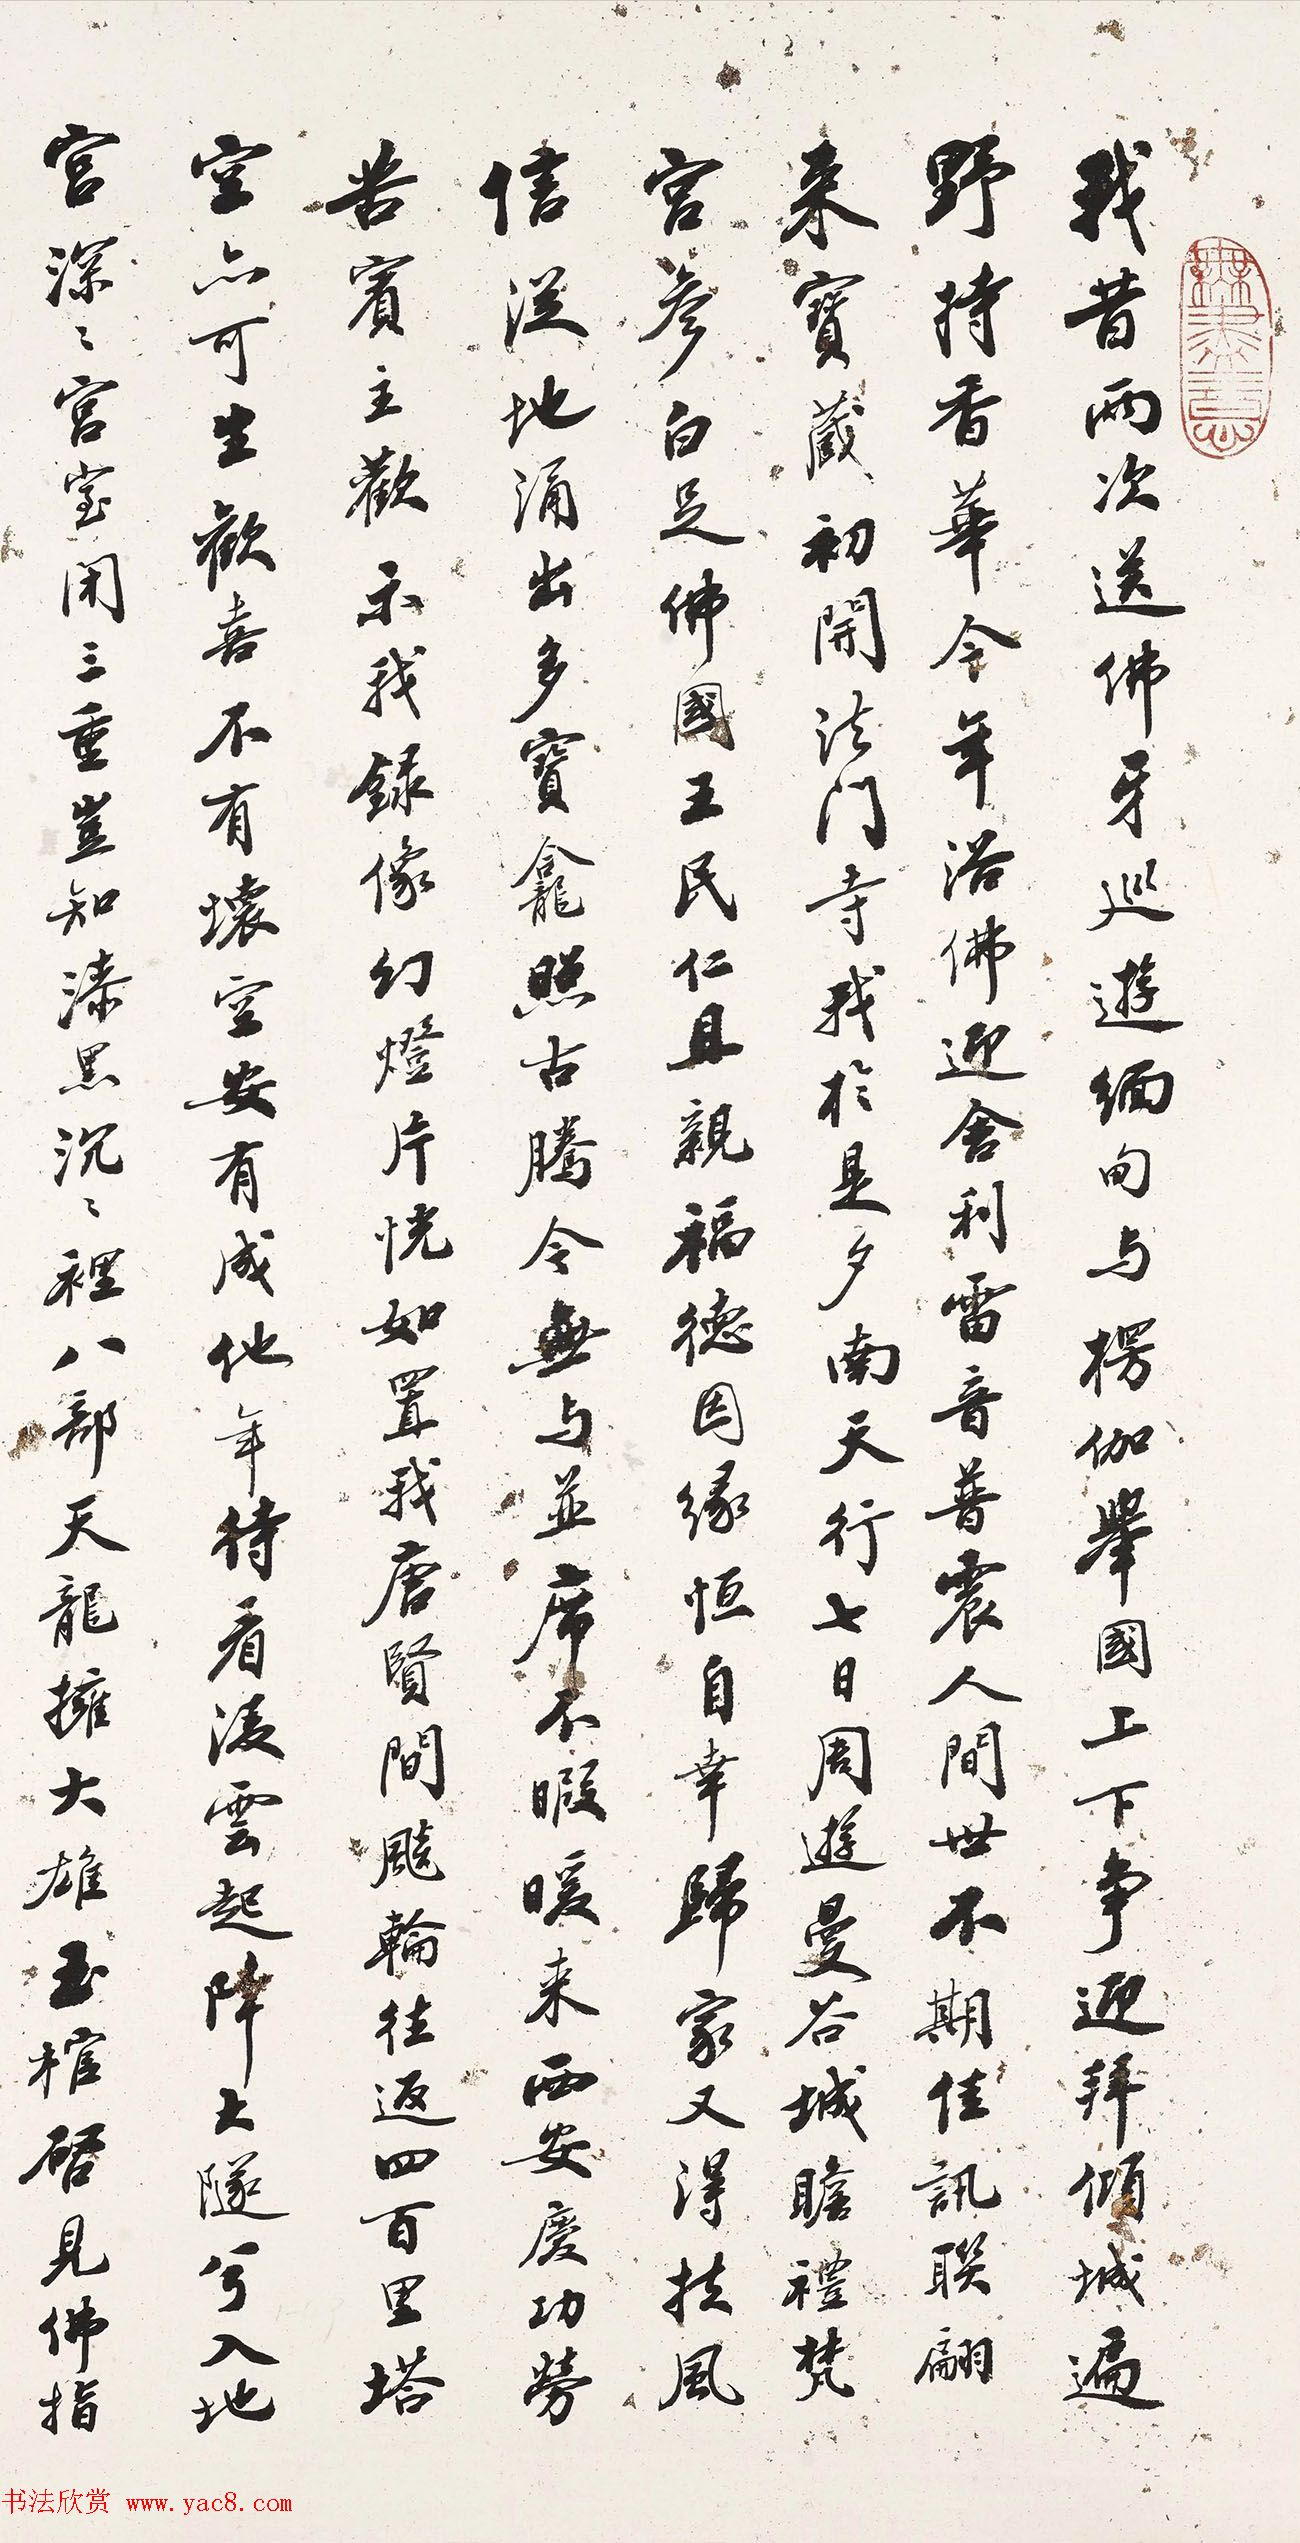 我昔兩次送佛牙巡遊緬甸与楞伽舉國上下爭迎拜傾城遍
野持香華今年浴佛迎舍利雷音普震人間世不期佳訊联翩
来寶藏初開法门寺我於是夕南天行七日周遊曼谷城瞻禮梵
宮參白足佛國王民仁且親福德因緣恒自幸歸家又得扶風
信從地涌出多寶龕照古騰今無与並席不暇暖来西安慶功勞
苦賓主歡示我錄像幻燈片恍如置我唐賢間飈輪往返四百里塔
空亦可生歡喜不有壞空安有成他年待看凌雲起降大隧兮入地
宮深々宮室闭三重豈知漆黑沉々裡八部天龍擁大雄玉棺啓見佛指
無盡意
书法欣赏 www.yac8.com